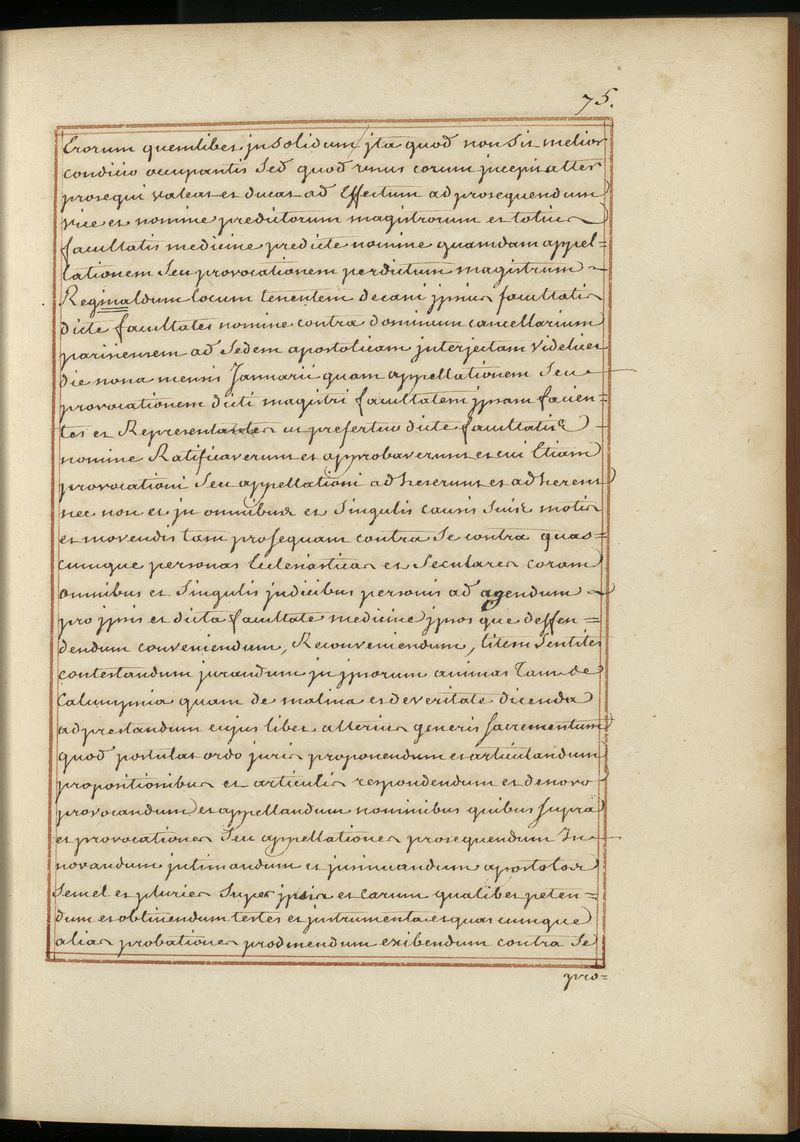 75.
Erorum quemlibet in Solidum jta quod non Sit melior
condicio occupantis Sed quod unus eorum jncepit alter
prosequi valeat et ducat ad Effectum ad prosequendum
vice et nomine predictorum magistrorum et totius
facultatis medicine predicte nomine quamdam appel=
lationem Seu provocationem per dictum magistrum
Reginaldum locum tenentem decani jpsius facultatis
dicte facultates nomine contra dominum cancellarium
parisiensem ad Sedem apostolicam jnterjectam videlicet
die nona mensis Januarii quam appellationem Seu
provocationem dicti magistri facultatem jpsam facien=
tes et Representantes ut prefertur dicte facultatis
nomine Ratificaverunt et approbaverunt et cui Etiam
provocationi Seu appellationi adheserunt et adherent
nec non et jn omnibus et Singulis causis Suis motis
et movendis tam prosequam contra Se contra quas=
cumque personas Ecclesiasticas et Seculares coram
omnibus et Singulis judicibus personis ad agendum
pro jpsis et dicta facultate medicine jpsos que deffen=
dendum conveniendum, Reconveniendum, litem Sentites
contestandum jurandum jn jpsorum animas Tam de
Calumpnia quam de malina et de veritate dicenda
ad prestandum cujus libet alterius generis Sacrementum
quod postulat ordo juris proponendum et articulandum
propositionibus et articulis respondendum et denovo
provocandum et appellandum nominibus quibus Supra
et provocationes Seu appellationes prosequendum In=
novandum jntimandum et jnsinuandum apostolos
Semel et pluries Super jpsis et earum qualibet peten=
dum et obtinendum testes et jnstrumenta et quas cumque
alias probationes prodmendum exibendum contra Se
pro=